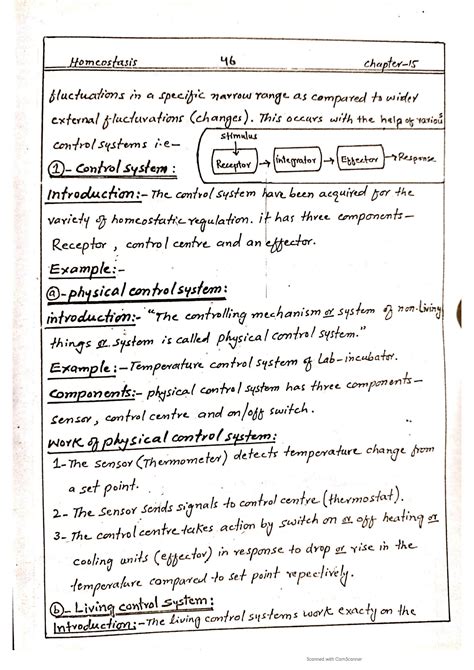 Homeostasis 46 Chapter-15
fluctuations in a specific narrow range as compared to wider
external flucturations (changes). This occurs with the help of various
control systems i.e-
stimulus
Receptor → integrator → Effector → Response
①- Control system:
Introduction:- The control system have been acquired for the
variety of homeostatic regulation. it has three components-
Receptor, control centre and an effector.
Example:-
ⓐ-physical control system:
introduction:- "The controlling mechanism or system of non-living
things or system is called physical control system."
Example:- Temperature control system of Lab-incubator.
Components:- physical control system has three components-
sensor, control centre and on/off switch.
Work of physical control system:
1- The sensor (Thermometer) detects temperature change from
a set point.
2- The sensor sends signals to control centre (thermostat).
3- The control centre takes action by switch on or off heating or
cooling units (effector) in response to drop or rise in the
temperature compared to set point repectively.
ⓑ- Living control system:
Introduction:- The living control systems work exactly on the
Scanned with CamScanner